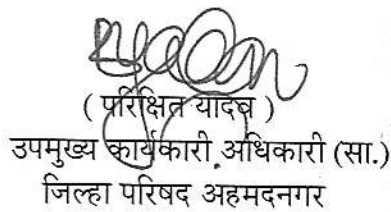 ( परिक्षित यादव )
उपमुख्य कार्यकारी अधिकारी (सा.)
जिल्हा परिषद अहमदनगर